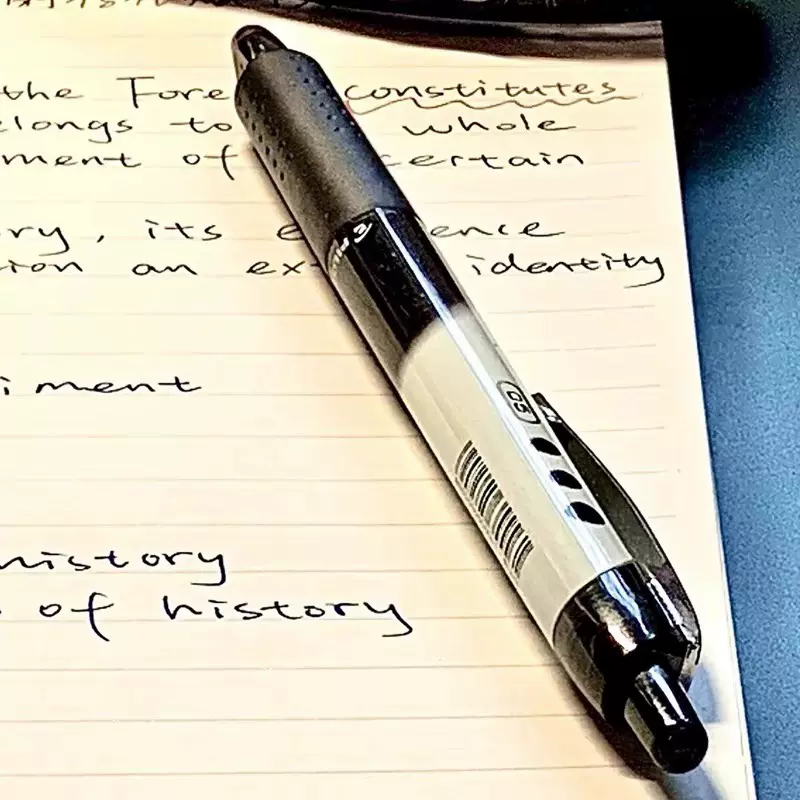 the Fore constitutes
elongs to whole
ment of certain
ry, its e ence
ion an ex- identity
iment
history
of history
05